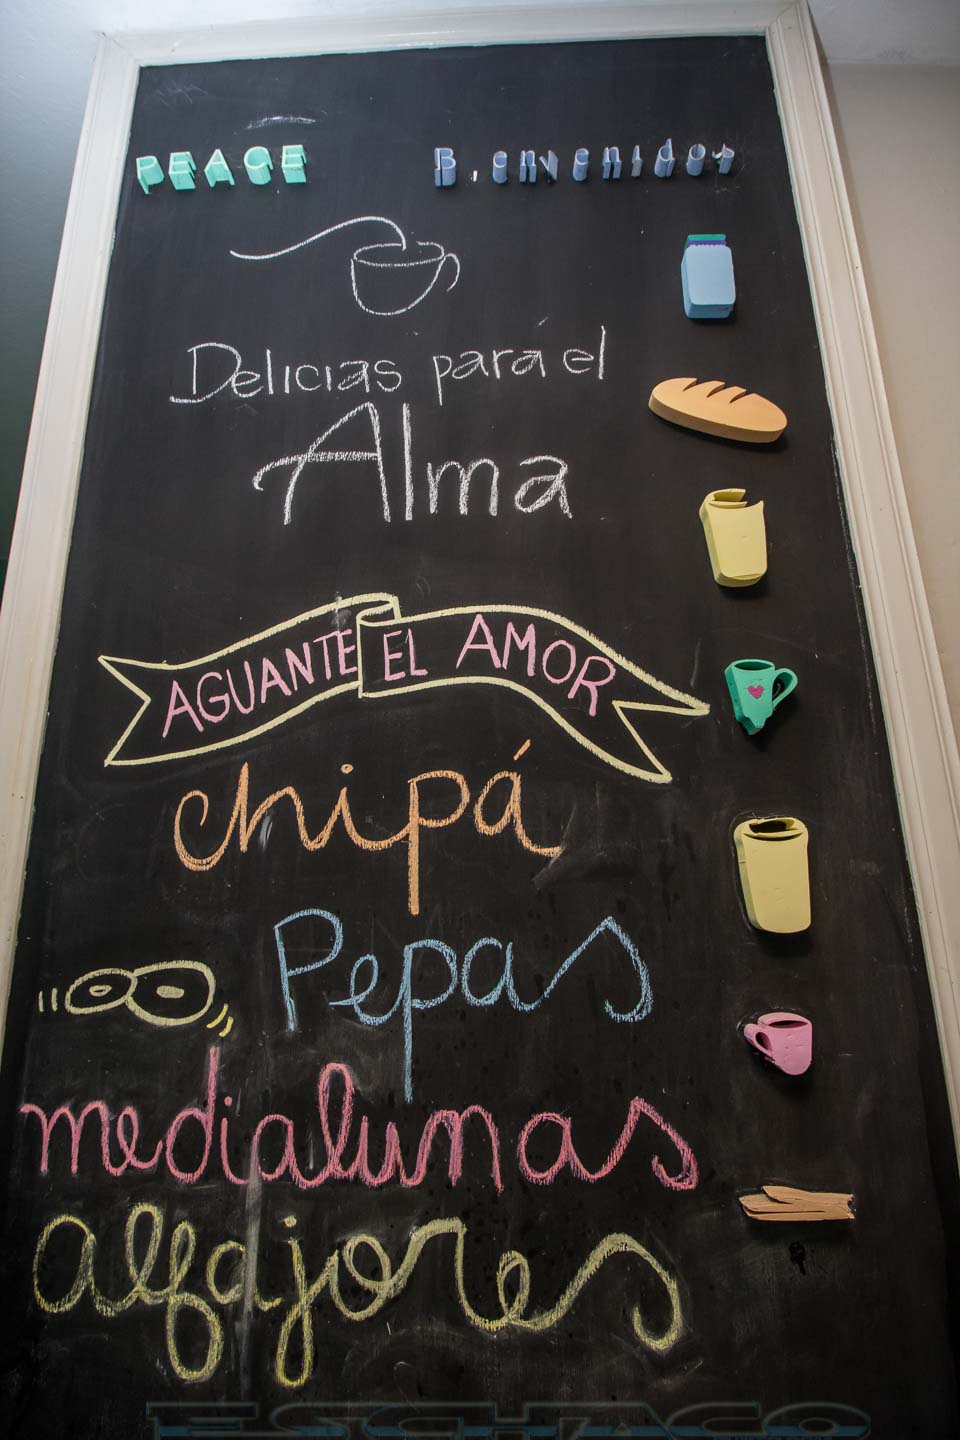 PEACE B.envenidos
Delicias para el
Alma
AGUANTE EL AMOR
chipá
Pepas
medialunas
alfajores
ESCHACO